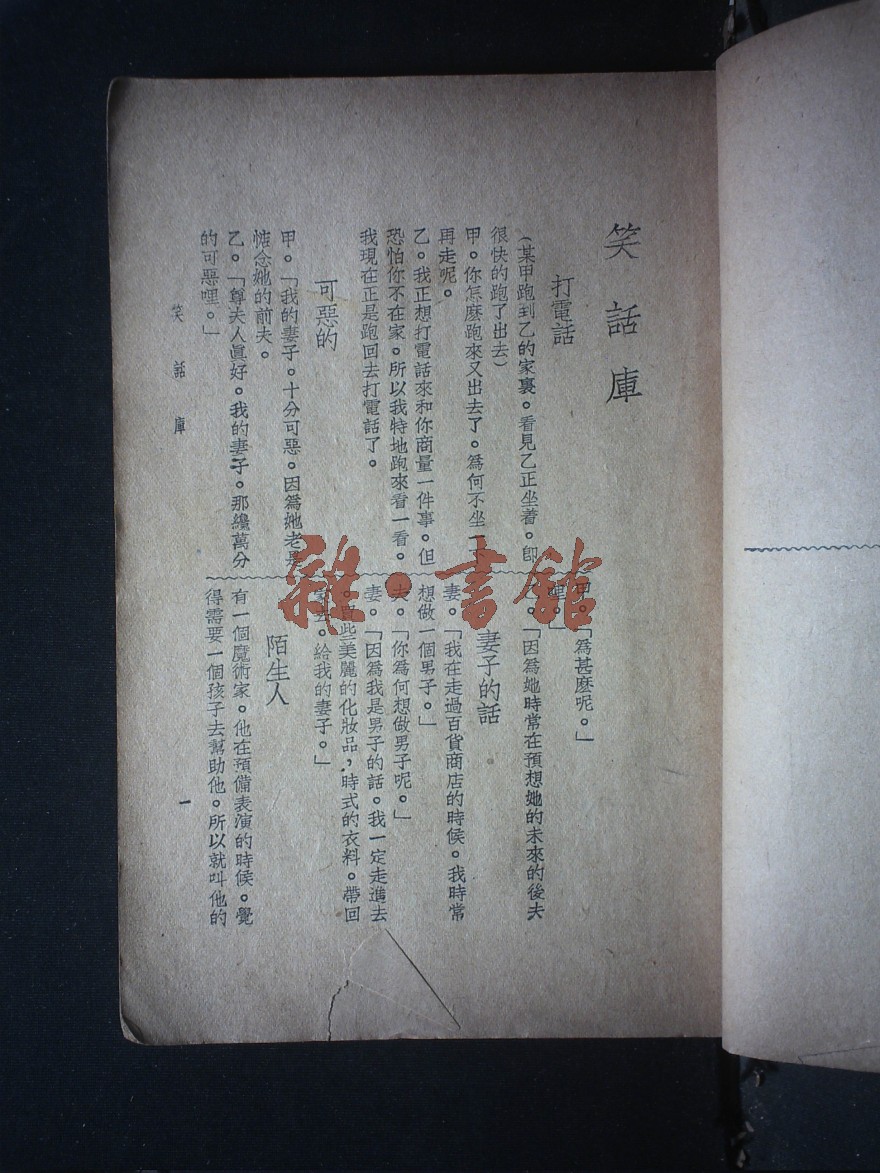 笑話庫
打電話
(某甲跑到乙的家裏。看見乙正坐着。卽
很快的跑了出去)
甲。你怎麽跑來又出去了。爲何不坐一
再走呢。
乙。我正想打電話來和你商量一件事。但
恐怕你不在家。所以我特地跑來看一看。
我現在正是跑回去打電話了。
可惡的
甲。「我的妻子。十分可惡。因爲她老是
惦念她的前夫。
乙。「尊夫人眞好。我的妻子。那纔萬分
的可惡哩。」
甲。「爲甚麽呢。」
。「因爲她時常在預想她的未來的後夫
哩。」
妻子的話
妻。「我在走過百貨商店的時候。我時常
想做一個男子。」
夫。「你爲何想做男子呢。」
妻。「因爲我是男子的話。我一定走進去
些美麗的化妝品，時式的衣料。帶回
。給我的妻子。」
陌生人
有一個魔術家。他在預備表演的時候。覺
得需要一個孩子去幫助他。所以就叫他的
笑話庫
一
雜·書館